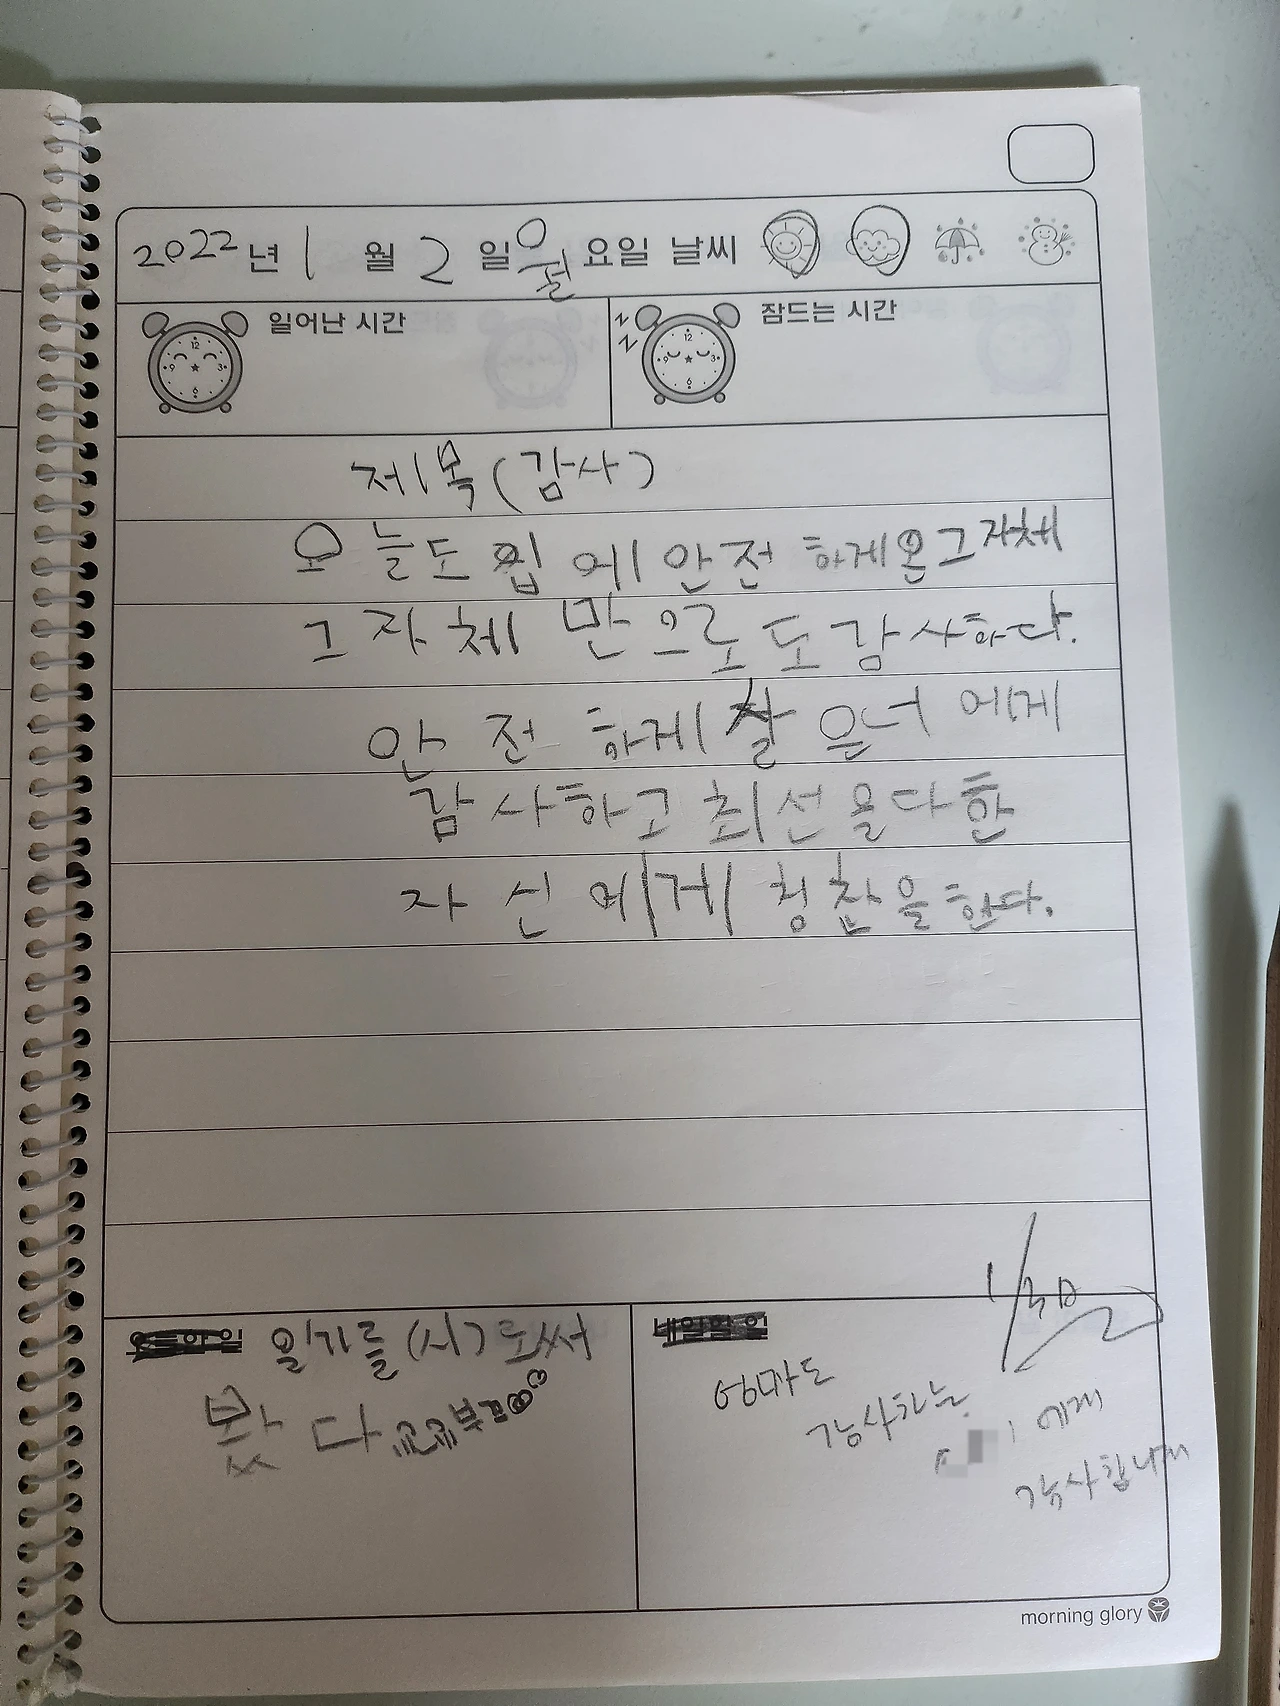 2022년 1월 2일 월요일 날씨
일어난 시간
잠드는 시간
제목(감사)
오늘도 집에 안전하게온그자체
그자체만으로도감사하다.
안전하게 잘 은너에게
감사하고 최선을다한
자신에게 칭찬을한다.
오늘한일 일기를(시)로써
봤다
내일할일
1/30
엄마도
감사하는
에게
감사합니다
morning glory